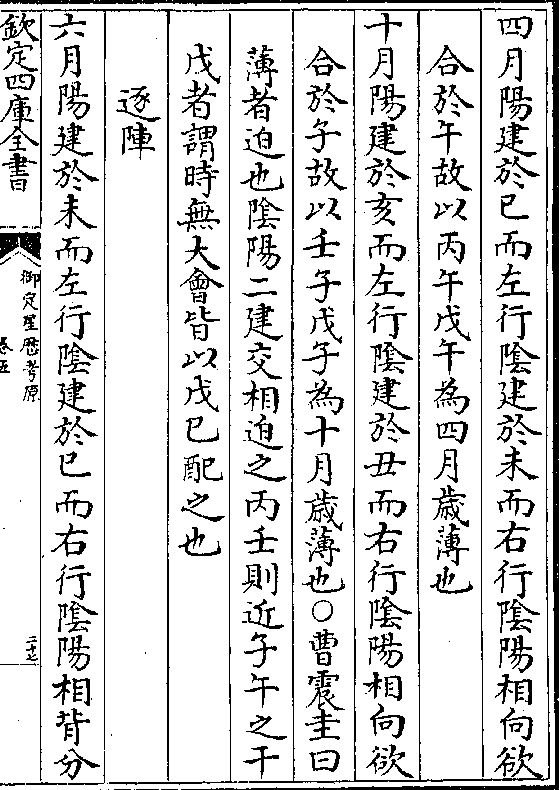 四月陽建於巳而左行隂建於未而右行隂陽相向欲
合於午故以丙午戊午為四月歳薄也
十月陽建於亥而左行隂建於丑而右行隂陽相向欲
合於子故以壬子戊子為十月歳薄也○曹震圭曰
薄者迫也隂陽二建交相迫之丙壬則近子午之干
戊者謂時無大會皆以戊已配之也
逐陣
六月陽建於未而左行隂建於巳而右行隂陽相背分
欽定四庫全書
御定星歴考原
卷五
二十七